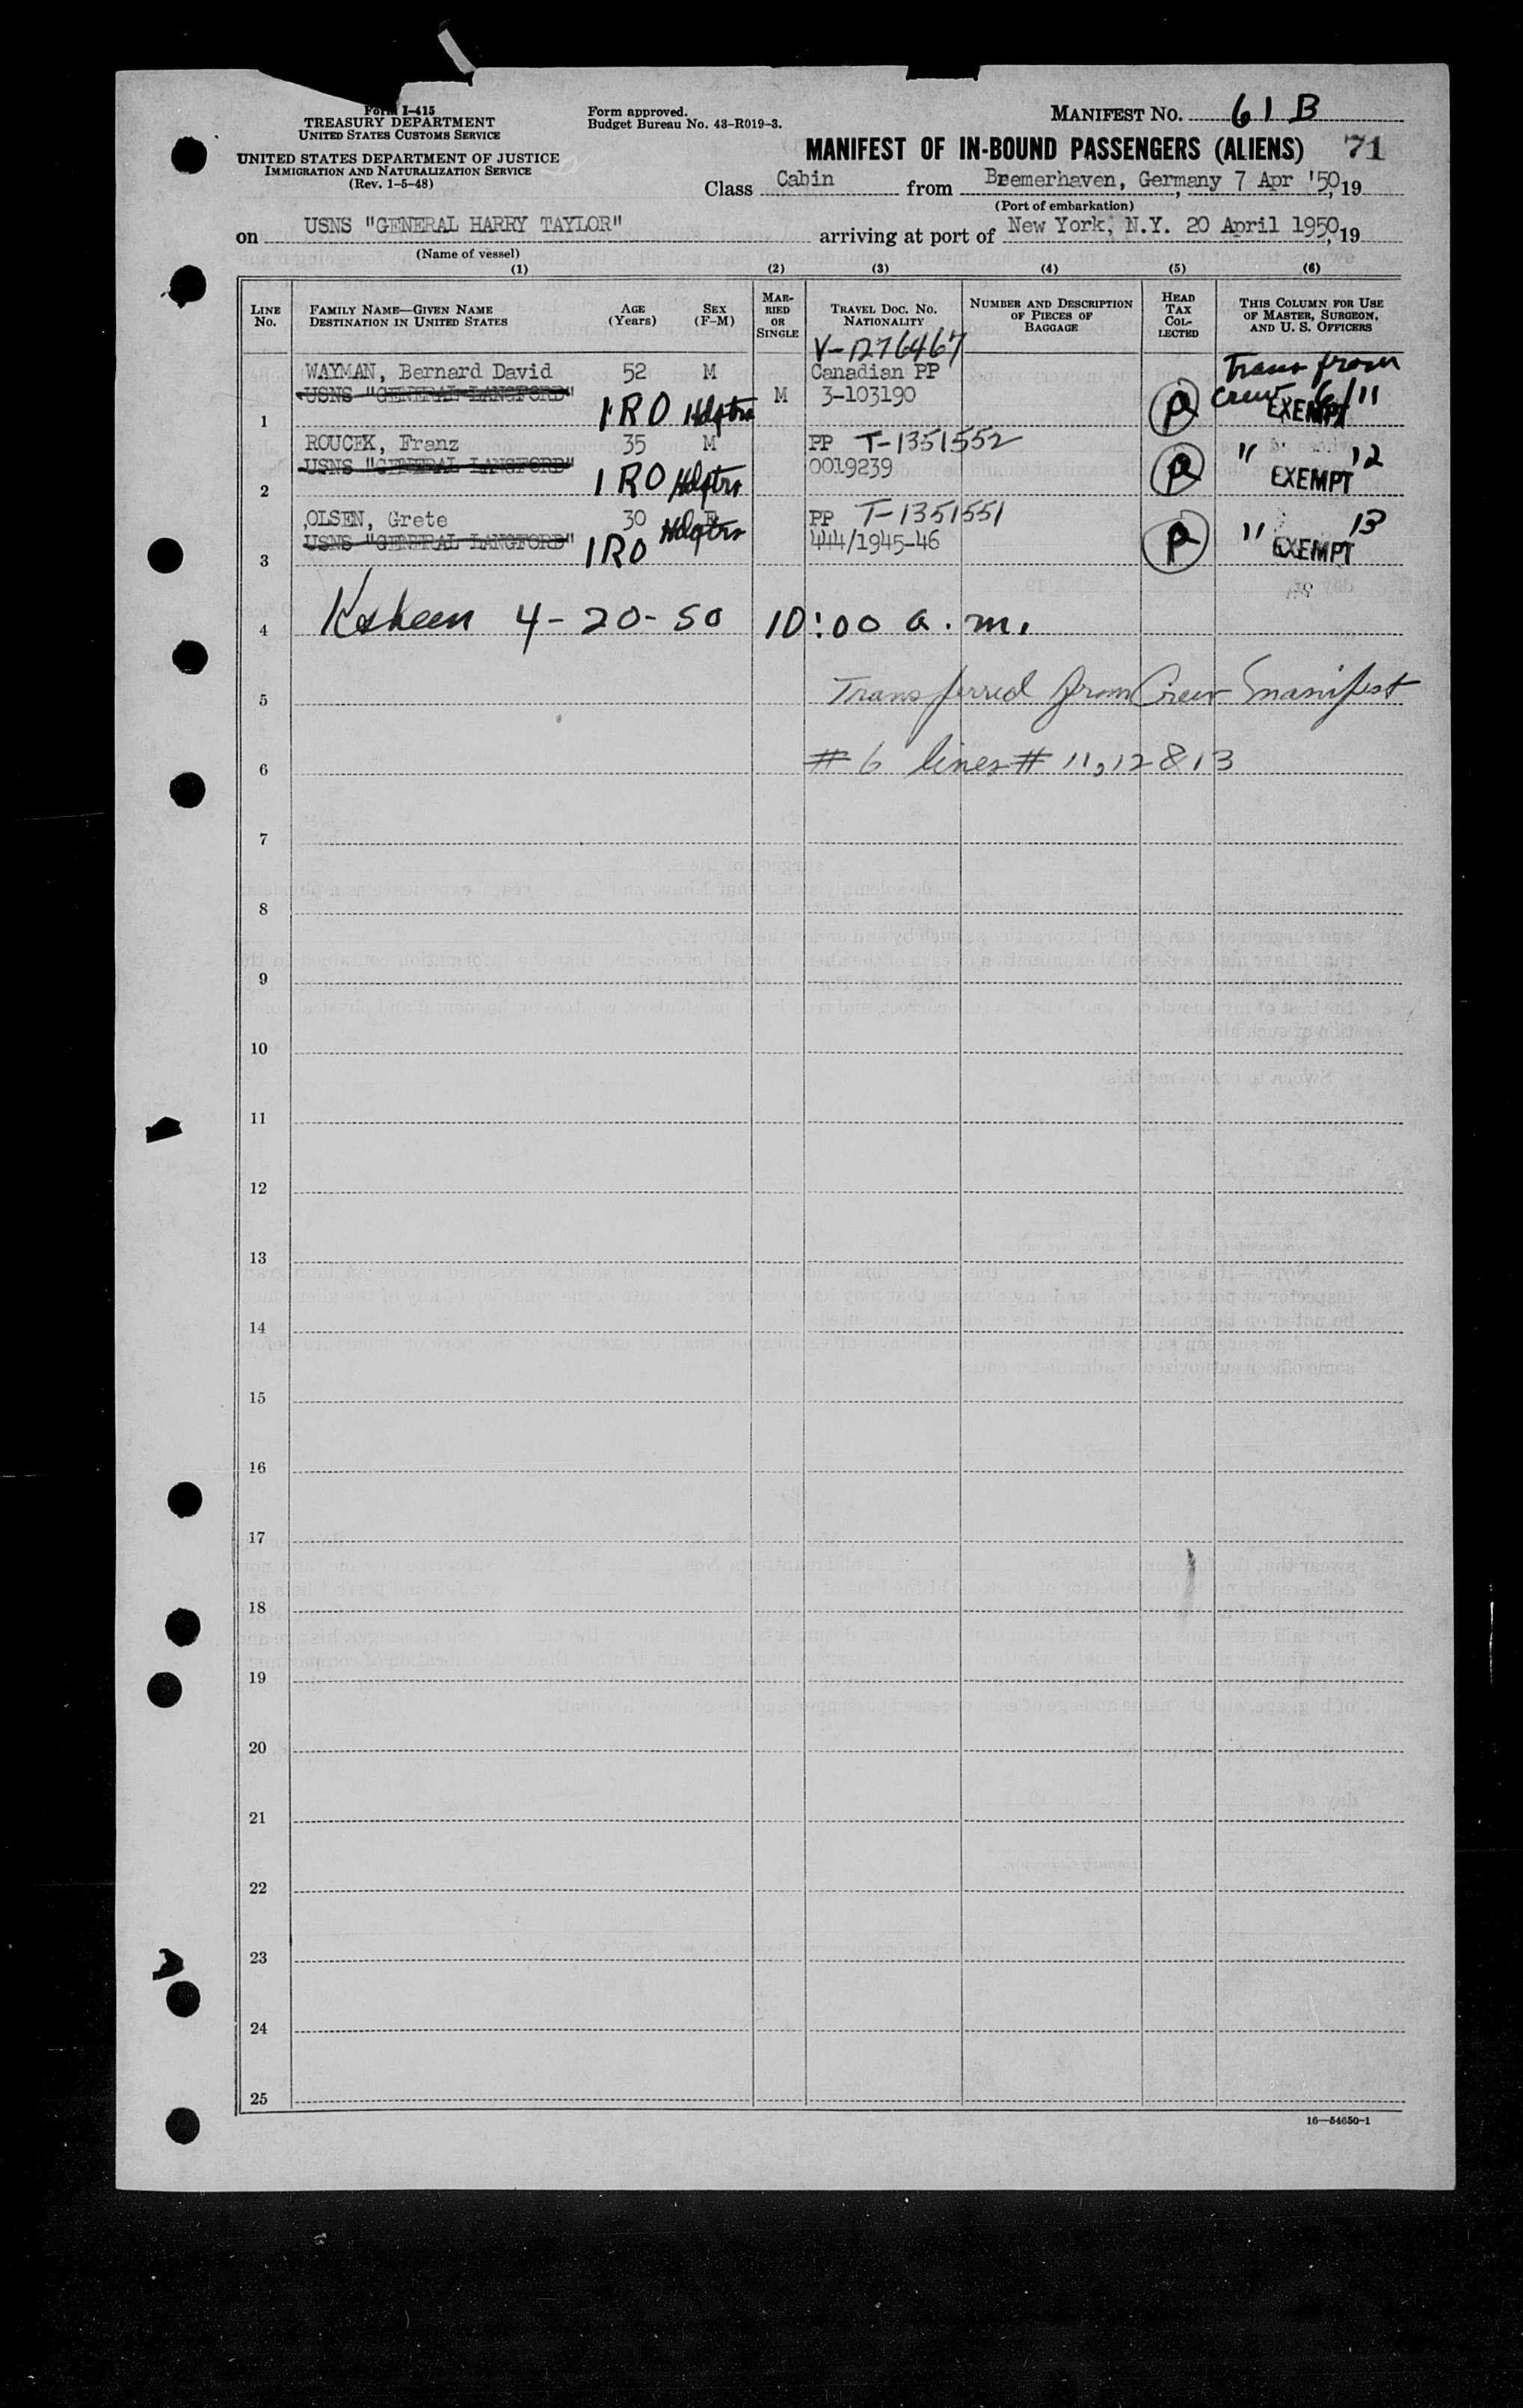 Form I-415
TREASURY DEPARTMENT
UNITED STATES CUSTOMS SERVICE
UNITED STATES DEPARTMENT OF JUSTICE
IMMIGRATION AND NATURALIZATION SERVICE
(Rev. 1-5-48)
Form approved.
Budget Bureau No. 43-R019-3.
MANIFEST NO. 61 B
MANIFEST OF IN-BOUND PASSENGERS (ALIENS) 71
Class Cabin from Bremerhaven, Germany 7 Apr '50, 19
(Port of embarkation)
on USNS "GENERAL HARRY TAYLOR" arriving at port of New York, N.Y. 20 April 1950, 19
(Name of vessel)
(1) (2) (3) (4) (5) (6)
LINE No. FAMILY NAME—GIVEN NAME DESTINATION IN UNITED STATES AGE (Years) SEX (F-M) MARRIED OR SINGLE TRAVEL DOC. NO. NATIONALITY NUMBER AND DESCRIPTION OF PIECES OF BAGGAGE HEAD TAX COLLECTED THIS COLUMN FOR USE OF MASTER, SURGEON, AND U. S. OFFICERS
V-1276467
WAYMAN, Bernard David 52 M Canadian PP Trans from
USNS "GENERAL LANGFORD" M 3-103190 Crew 6/11
1 IRO Hdqtrs P EXEMPT
ROUCEK, Franz 35 M PP T-1351552
USNS "GENERAL LANGFORD" 0019239 P " 12
2 IRO Hdqtrs EXEMPT
OLSEN, Grete 30 F PP T-1351551
USNS "GENERAL LANGFORD" Hdqtrs 444/1945-46 P " 13
3 IRO EXEMPT
4 4-20-50 10:00 a.m.
5 Transferred from Crew Manifest
6 # 6 lines # 11, 12 & 13
7
8
9
10
11
12
13
14
15
16
17
18
19
20
21
22
23
24
25
16—54650-1